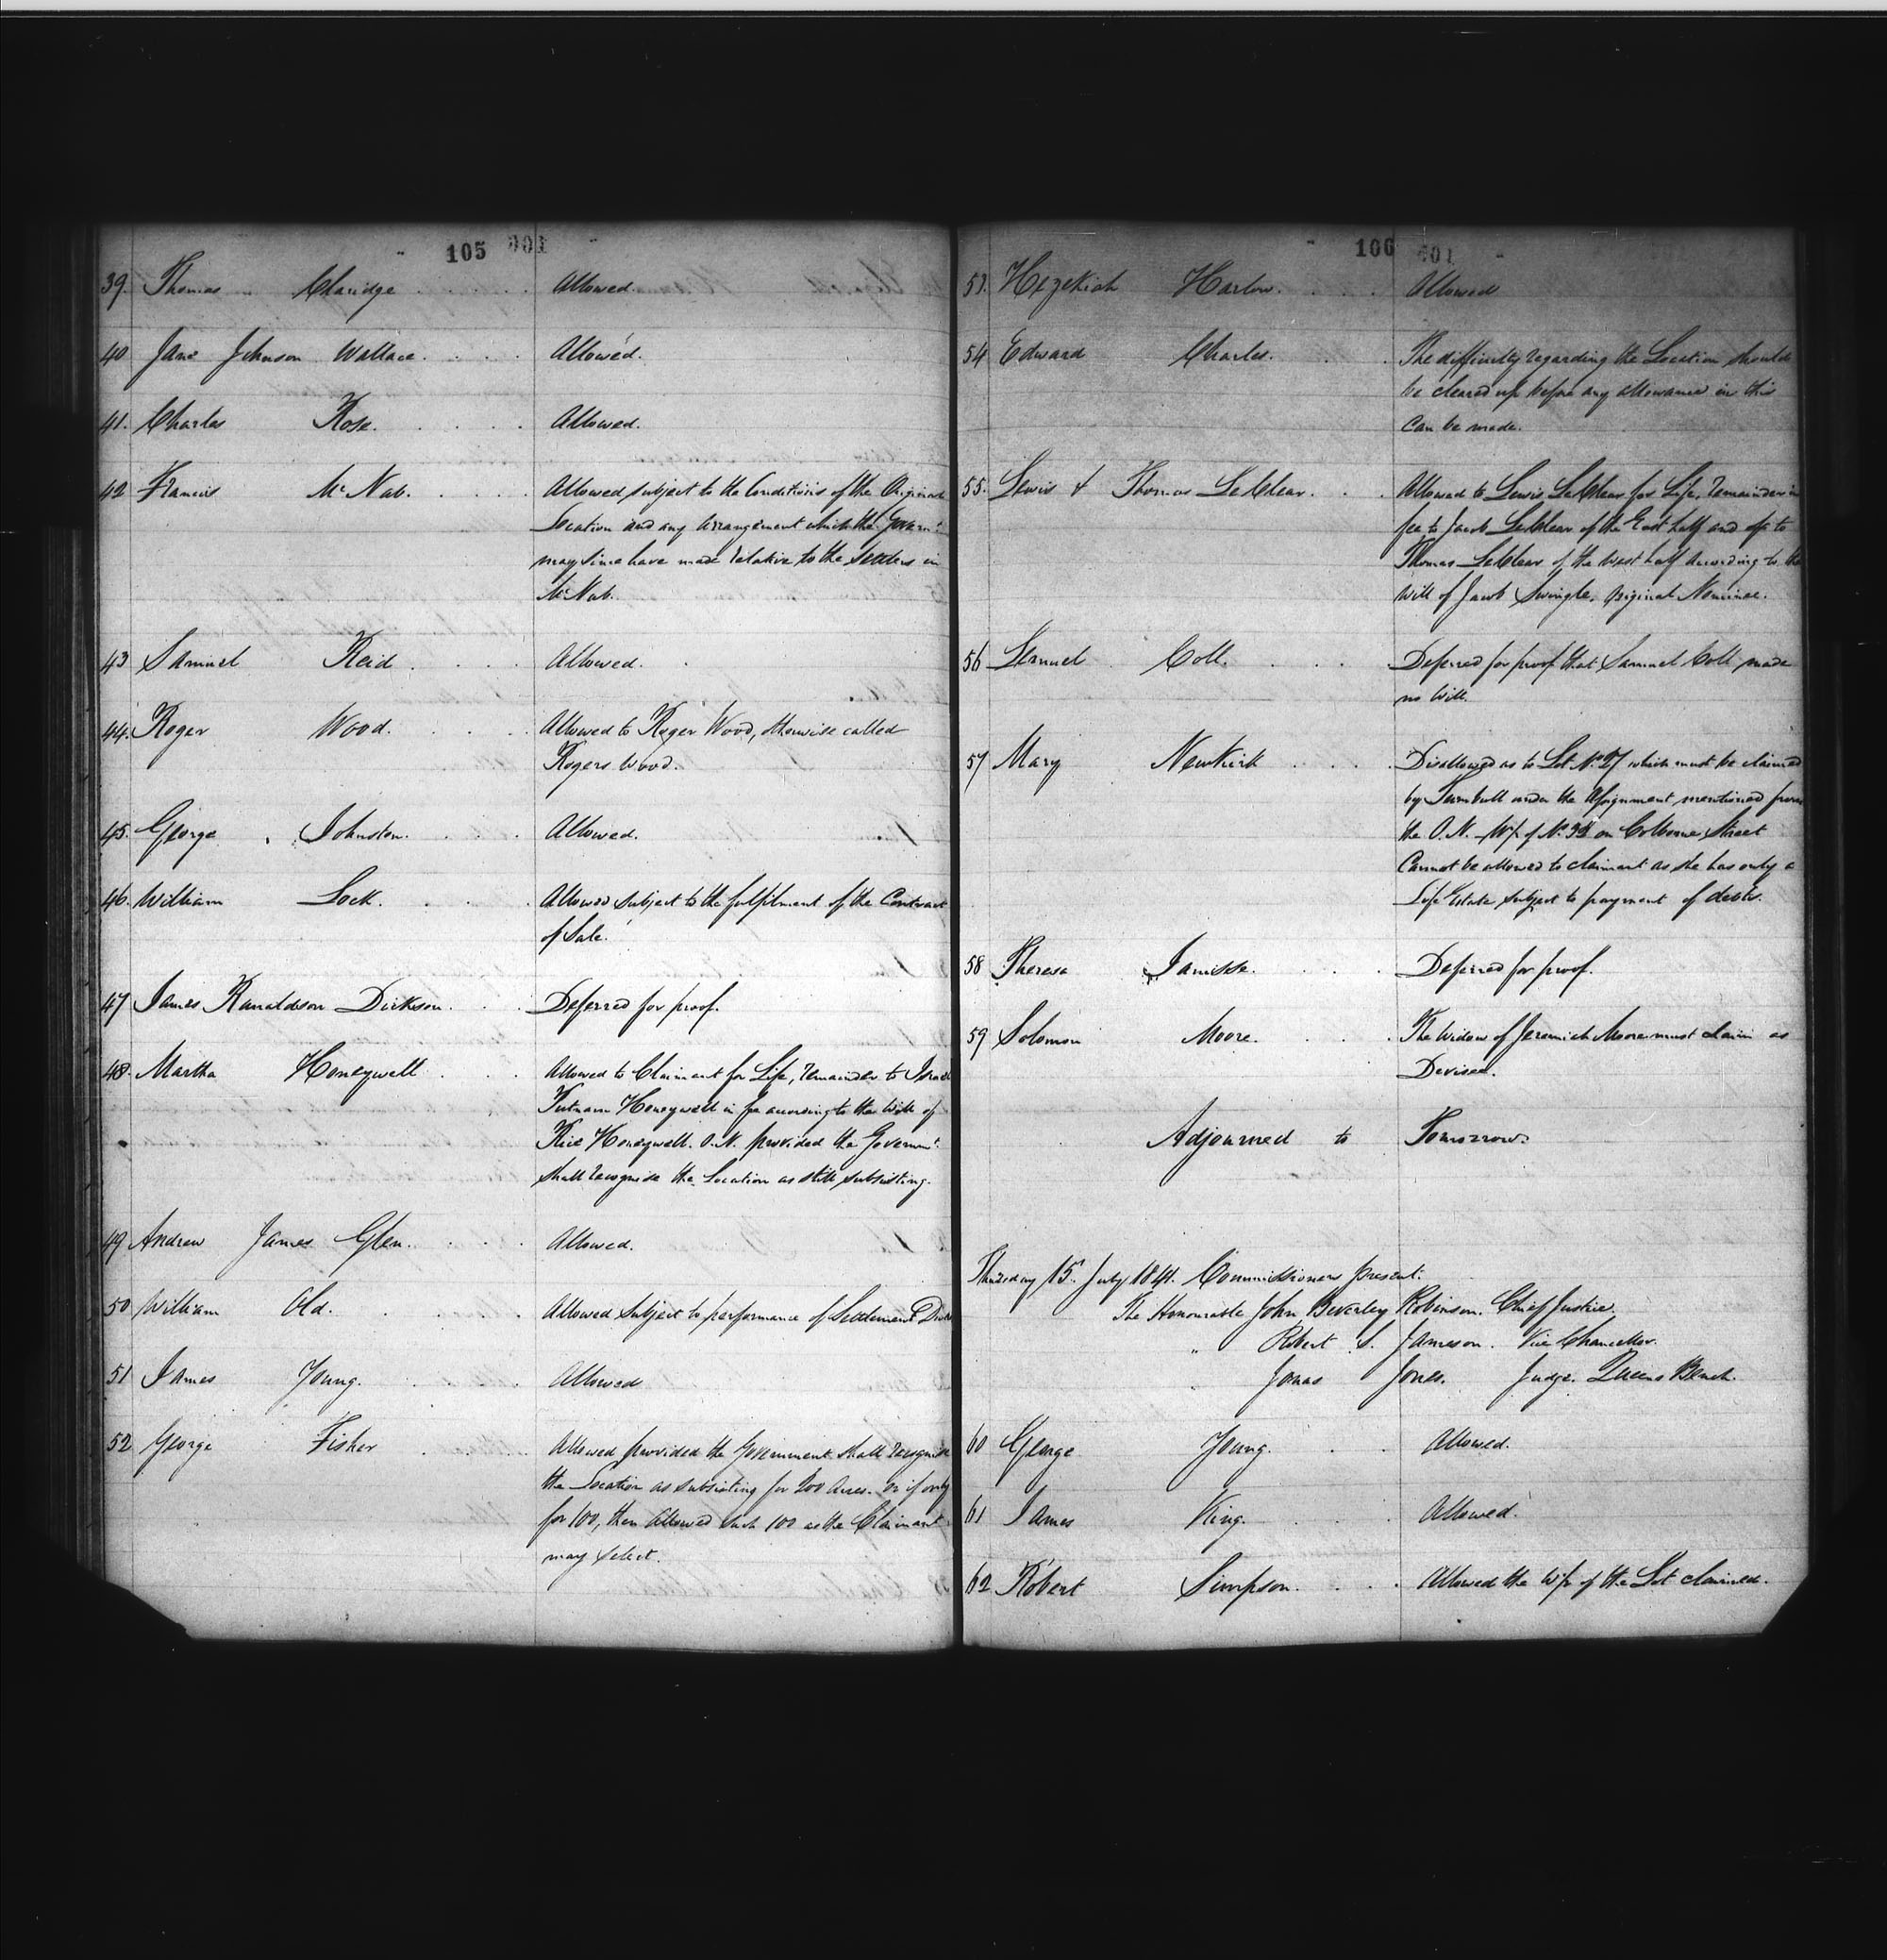 105 001
39. Thomas Claridge Allowed.
40 Jane Johnson Wallace. Allowed.
41. Charles Rose. Allowed.
42 Francis McNab. Allowed subject to the Conditions of the Original
Location and any Arrangement which the Governmt
may since have made relative to the Settlers in
McNab.
43 Samuel Reid Allowed.
44. Roger Wood. Allowed to Roger Wood, otherwise called
Rogers Wood.
45. George Johnston. Allowed.
46. William Lock. Allowed subject to the fulfilment of the Contract
of Sale.
47 James Ranaldson Dickson. Deferred for proof.
48. Martha Honeywell Allowed to Claimant for Life, remainder to Israel
Putnam Honeywell in fee according to the Will of
Rice Honeywell. O.N. provided the Governmt
shall recognise the Location as still subsisting.
49 Andrew James Glen. Allowed.
50 William Old. Allowed subject to performance of Settlement Duties
51 James Young. Allowed
52 George Fisher Allowed provided the Government shall recognise
the Location as subsisting for 200 Acres. or if only
for 100, then Allowed such 100 as the Claimant
may select.
106 001
53. Hezekiah Harlow. Allowed
54 Edward Charles. The difficulty regarding the Location should
be cleared up before any allowance in this
can be made.
55. Lewis & Thomas LeClear. Allowed to Lewis LeClear for Life, remainder in
fee to Jacob LeClear of the East half and to
Thomas LeClear of the West half According to the
Will of Jacob Swingle, Original Nominee.
56 Lemuel Colt. Deferred for proof that Samuel Colt made
no Will.
57 Mary Newkirk Disallowed as to Lot No. 27 which must be claimed
by Turnbull under the Assignment mentioned from
the O.N. W/2 of No. on Colborne Street
Cannot be allowed to claimant as she has only a
Life Estate subject to payment of debts.
58 Theresa Janisse. Deferred for proof.
59 Solomon Moore. The Widow of Jeremiah Moore must claim as
Devisee.
Adjourned to Tomorrow.
Thursday 15. July 1841. Commissioners present.
The Honourable John Beverley Robinson. Chief Justice.
" Robert S. Jameson. Vice Chancellor.
" Jonas Jones. Judge. Queens Bench.
60 George Young. Allowed.
61 James King. Allowed.
62 Robert Simpson. Allowed the W/2 of the Lot claimed.